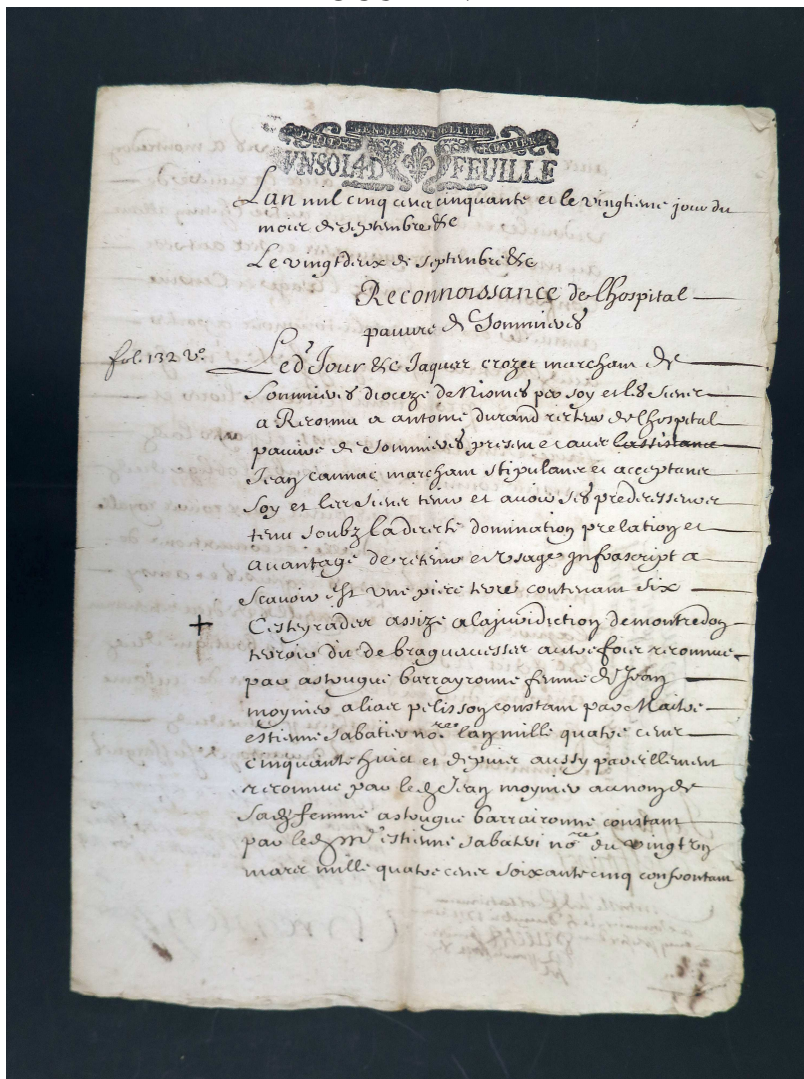 PETIT GEN. DE MONTPELLIER PAPIER
VNSOL4D FEUILLE
Lan mil cinq cens cinquante et le vingtieme jour du
mois de septembre &c
Le vingt deux de septembre &c
Reconnoissance de lhospital
pauvre de Sommieres
fol. 132 vo.
Led Jour &c Jaques crozet marchant de
Sommieres dioceze de Nismes par soy et les siens
a Reconnu a antoine durand recteur de lhospital
pauvre de Sommieres present et avec lassistance
Jean cannac marchant stipulant et acceptant
soy et les siens tenir et avoir ses predecesseurs
tenu soubz la directe domination prelation et
avantage de retenir et usage infrascript a
scavoir est une piece terre contenant six
+ Cesteyrades assize a la juridiction de montredon
terroir dit de braguavesses autre fois reconnue
par astougue barrayronne femme de Jean
moynier alias pelisson constant par Maitre
estienne sabatier nore lan mille quatre cens
cinquante huict et depuis aussy pareillement
reconnue par led Jean moynier au nom de
sad femme astougue barraironne constant
par led Me estienne sabatier nore du vingt troy
mars mille quatre cens soixante cinq confrontant